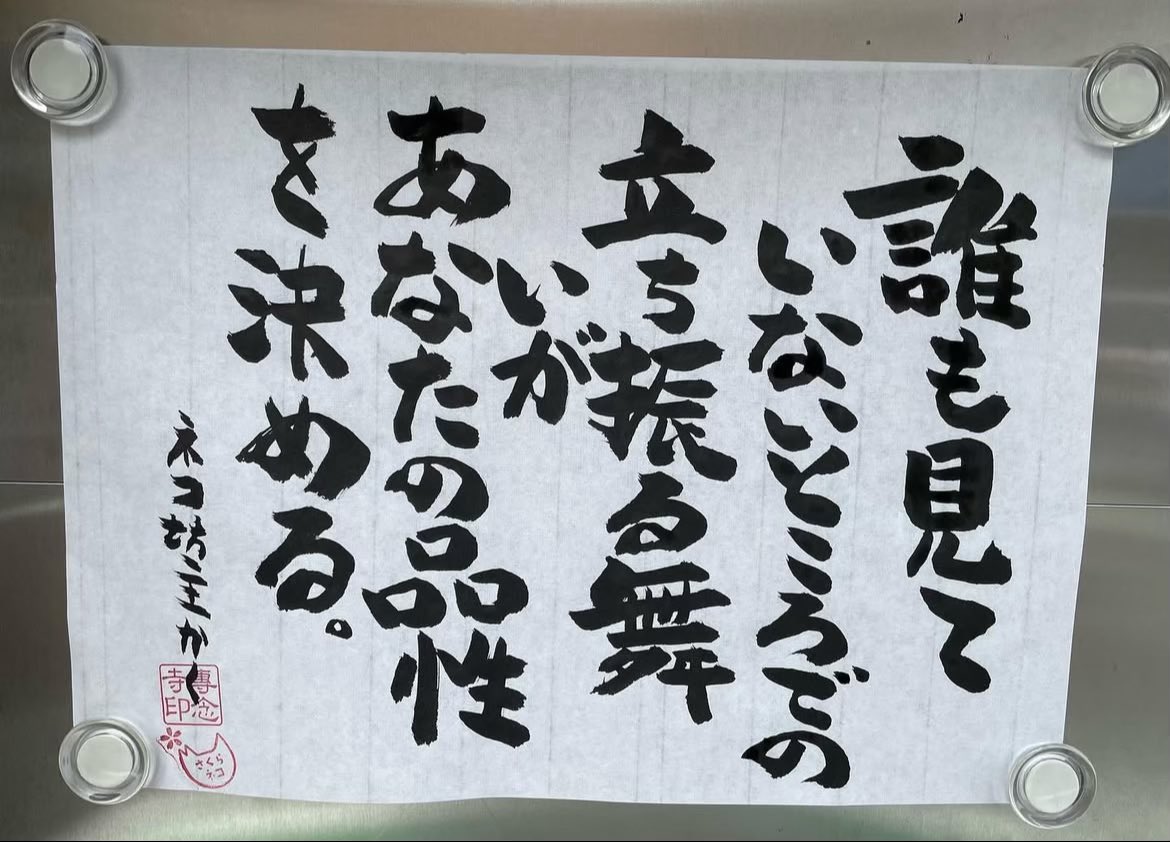 誰も見て
いないところでの
立ち振る舞
いが
あなたの品性
を決める。
ネコ坊主かく
專念
寺印
さくら
ネコ